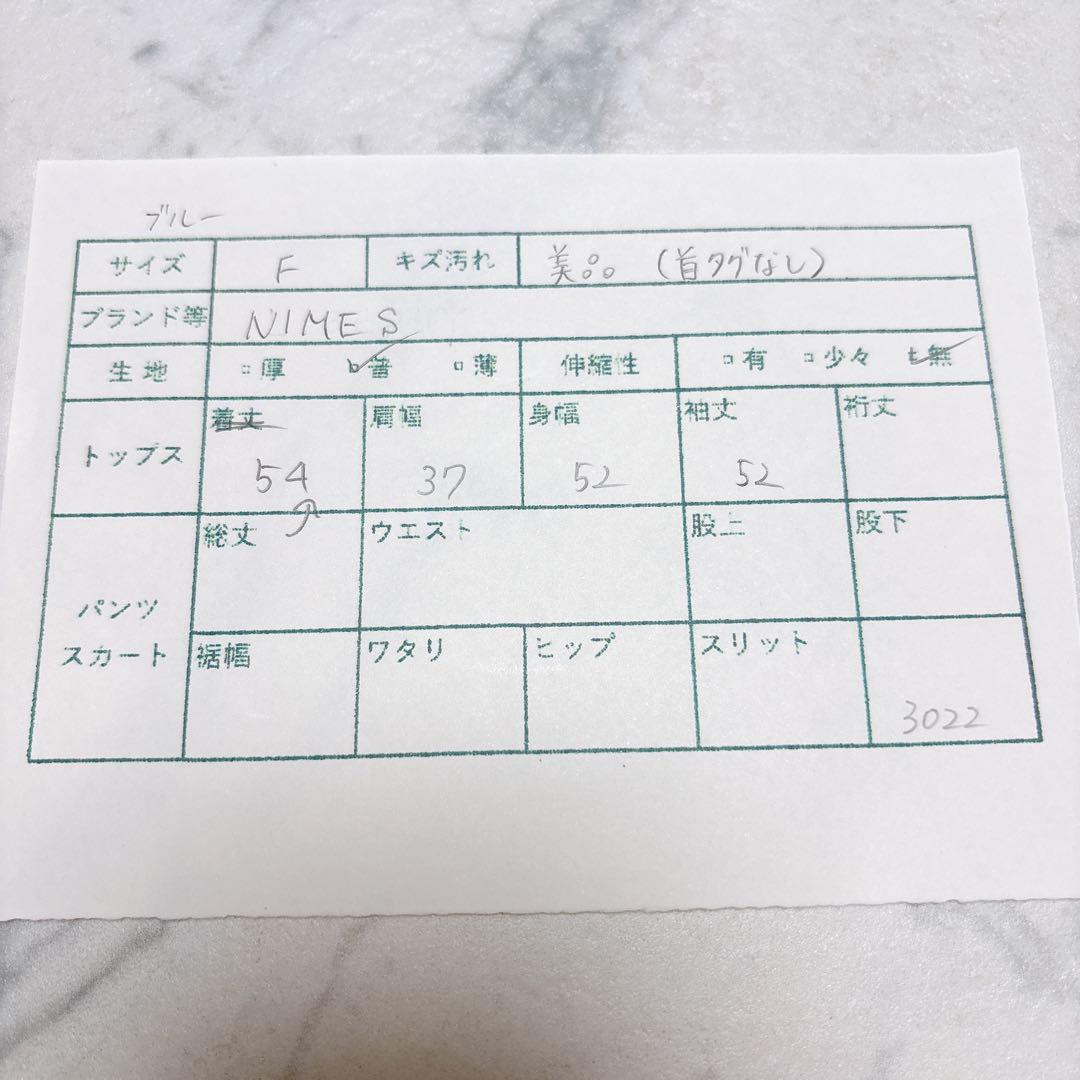 ブルー
サイズ F キズ汚れ 美品 (首タグなし)
ブランド等 NIMES
生地 □厚 □普 □薄 伸縮性 □有 □少々 □無
トップス 着丈 肩幅 身幅 袖丈 裄丈
54 37 52 52
パンツ スカート 総丈 ウエスト 股上 股下
裾幅 ワタリ ヒップ スリット
3022